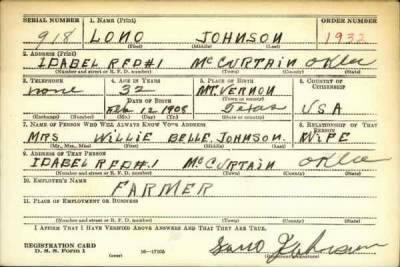 SERIAL NUMBER 1. NAME (Print) ORDER NUMBER
918 LONO JOHNSON 1932
(First) (Middle) (Last)
2. ADDRESS (Print)
IDABEL RFD#1 McCURTAIN Okla
(Number and street or R. F. D. number) (Town) (County) (State)
3. TELEPHONE 4. AGE IN YEARS 5. PLACE OF BIRTH 6. COUNTRY OF CITIZENSHIP
none 32 MT. VERNON
DATE OF BIRTH (Town or county)
Feb 12 1908 Texas USA
(Exchange) (Number) (Mo.) (Day) (Yr.) (State or country)
7. NAME OF PERSON WHO WILL ALWAYS KNOW YOUR ADDRESS 8. RELATIONSHIP OF THAT PERSON
MRS WILLIE BELLE JOHNSON. WIFE
(Mr., Mrs., Miss) (First) (Middle) (Last)
9. ADDRESS OF THAT PERSON
IDABEL RFD#1 McCURTAIN Okla
(Number and street or R. F. D. number) (Town) (County) (State)
10. EMPLOYER'S NAME
FARMER
11. PLACE OF EMPLOYMENT OR BUSINESS
(Number and street or R. F. D. number) (Town) (County) (State)
I AFFIRM THAT I HAVE VERIFIED ABOVE ANSWERS AND THAT THEY ARE TRUE.
REGISTRATION CARD
D. S. S. Form 1 16—17105 Lono Johnson
(Registrant's signature)